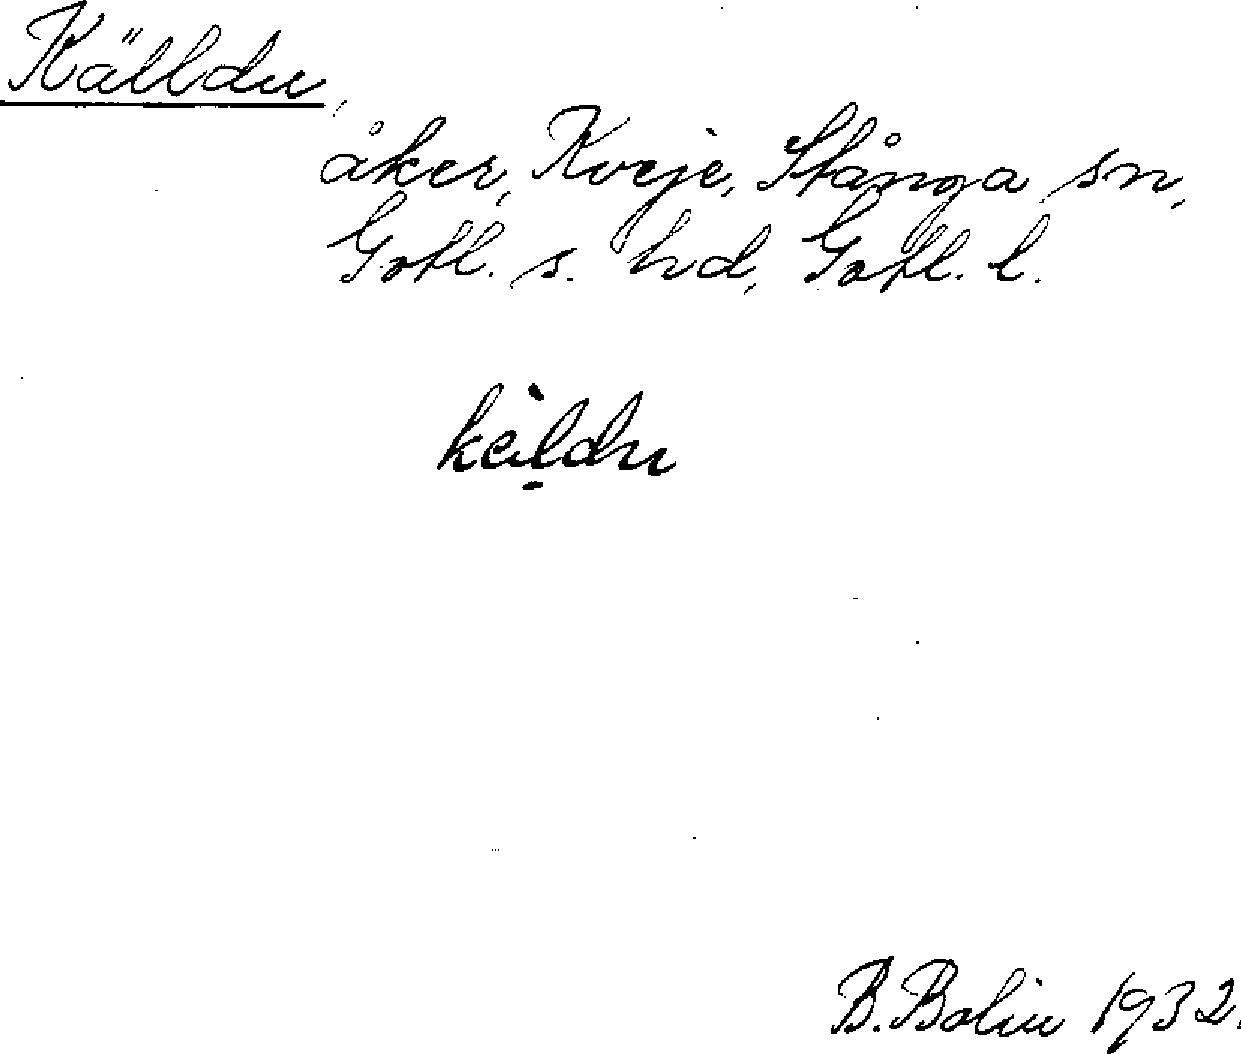 Källdu,
åker, Kveje, Stånga sn,
Gotl. s. hd, Gotl. l.
kèldu
B. Bolin 1932.